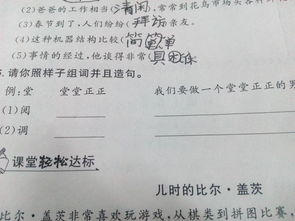 (2)爸爸的工作相当(清闲),常常到花鸟市场去
(3)春节到了,人们纷纷(拜访)亲友。
(4)这种机器结构比较(简单)
(5)事情的经过,他谈得非常(具体)
请你照样子组词并且造句。
例:堂 堂堂正正 我们要做一个堂堂正正的男
(1)阅
(2)调
课堂轻松达标
儿时的比尔·盖茨
比尔·盖茨非常喜欢玩游戏,从棋类到拼图比赛,